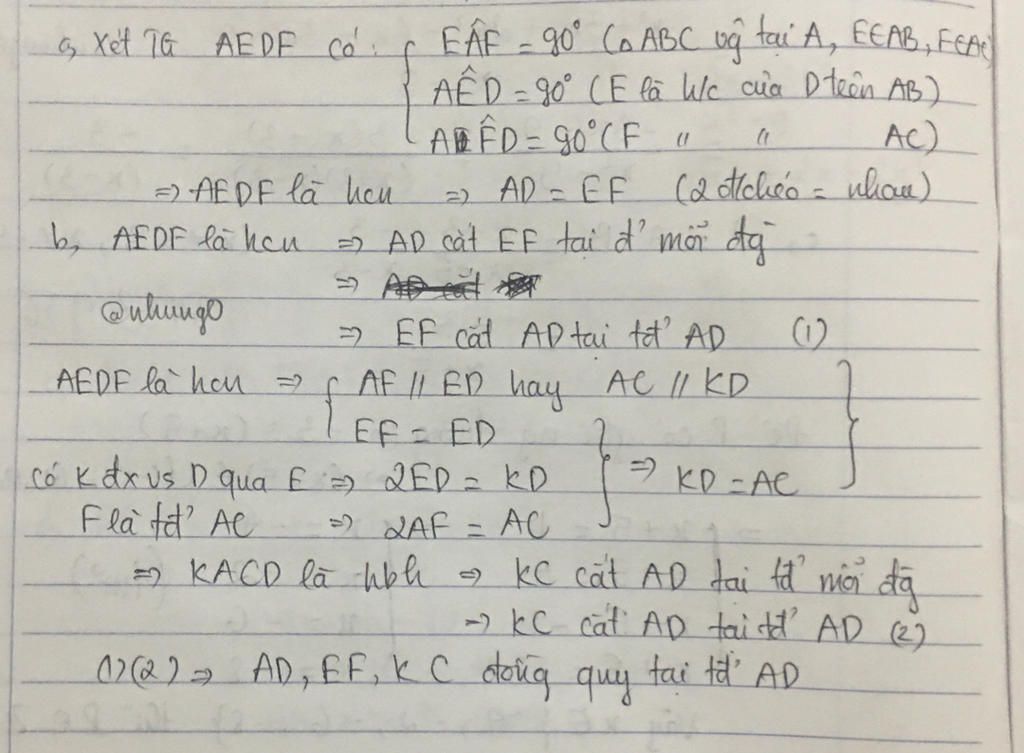 a, Xét TG AEDF có: { EÂF = 90° (△ABC vg tại A, E∈AB, F∈AC)
AÊD = 90° (E là h/c của D trên AB)
AF̂D = 90° (F " " AC)
=> AEDF là hcn => AD = EF (2 đ/chéo = nhau)
b, AEDF là hcn => AD cắt EF tại tđ' mỗi đg
=>
@nhung0
=> EF cắt AD tại tđ' AD (1)
AEDF là hcn => { AF // ED hay AC // KD }
EF = ED
có K đx vs D qua E => 2ED = KD } => KD = AC
F là tđ' AC => 2AF = AC
=> KACD là hbh => KC cắt AD tại tđ' mỗi đg
=> KC cắt AD tại tđ' AD (2)
(1)(2) => AD, EF, KC đồng quy tại tđ' AD